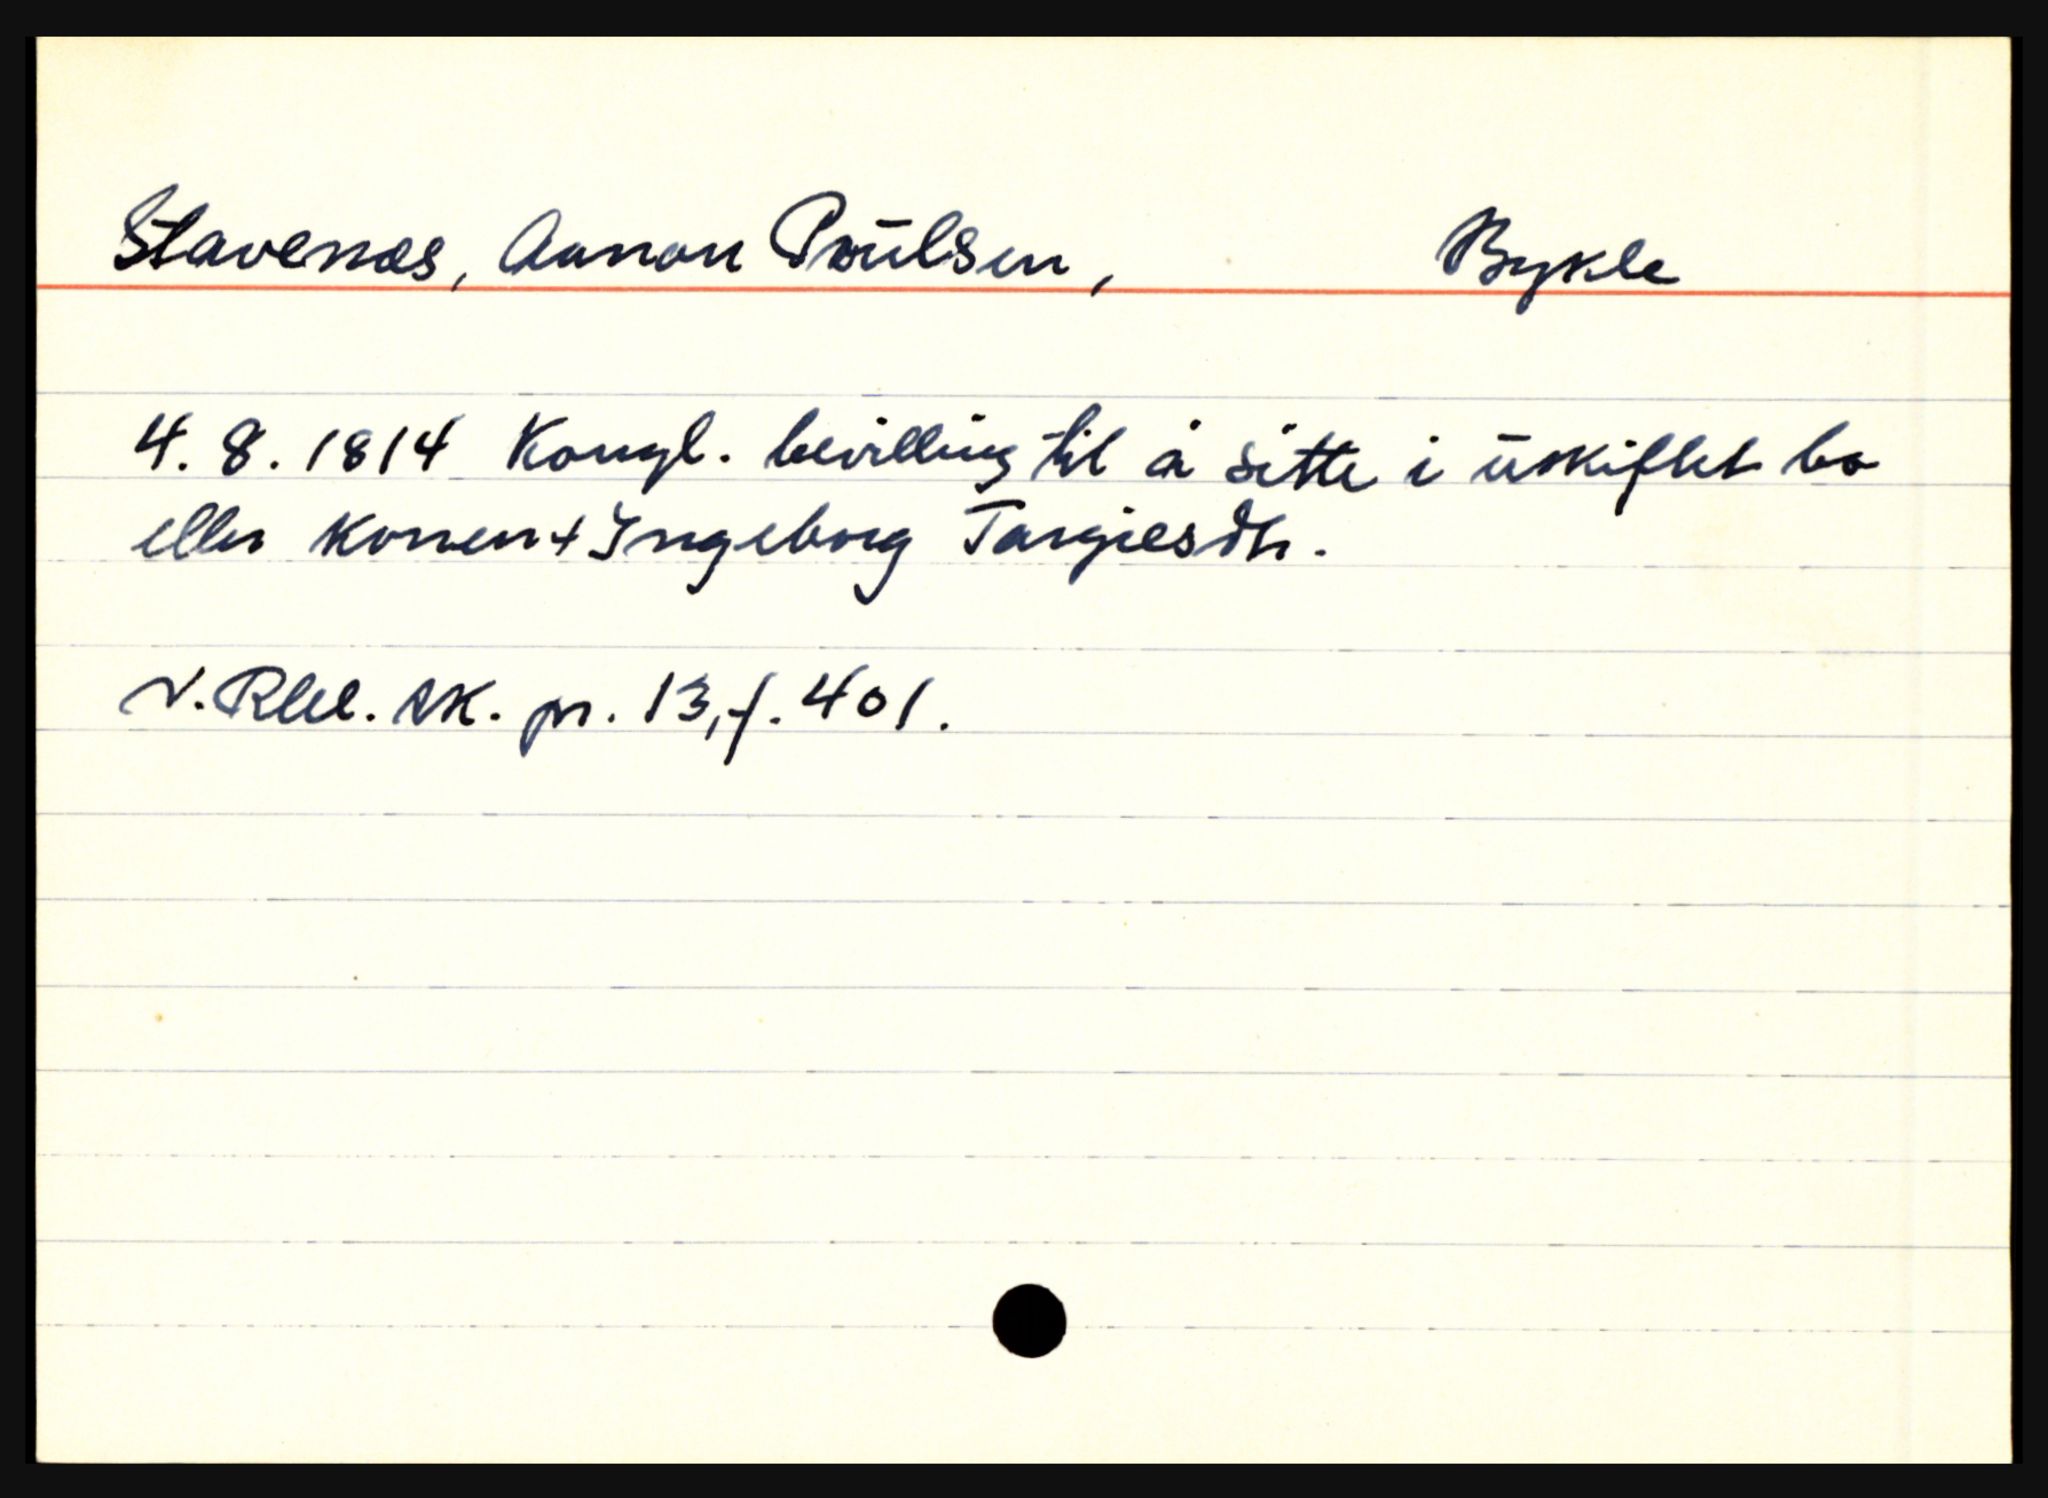 Stavenæs, Aanon Poulsen, Bykle
4. 8. 1814 Kongl. bevilling til å sitte i uskiftet bo
etter konen + Ingeborg Targiesdtr.
N. Rbl. sk. pr. 13, f. 401.